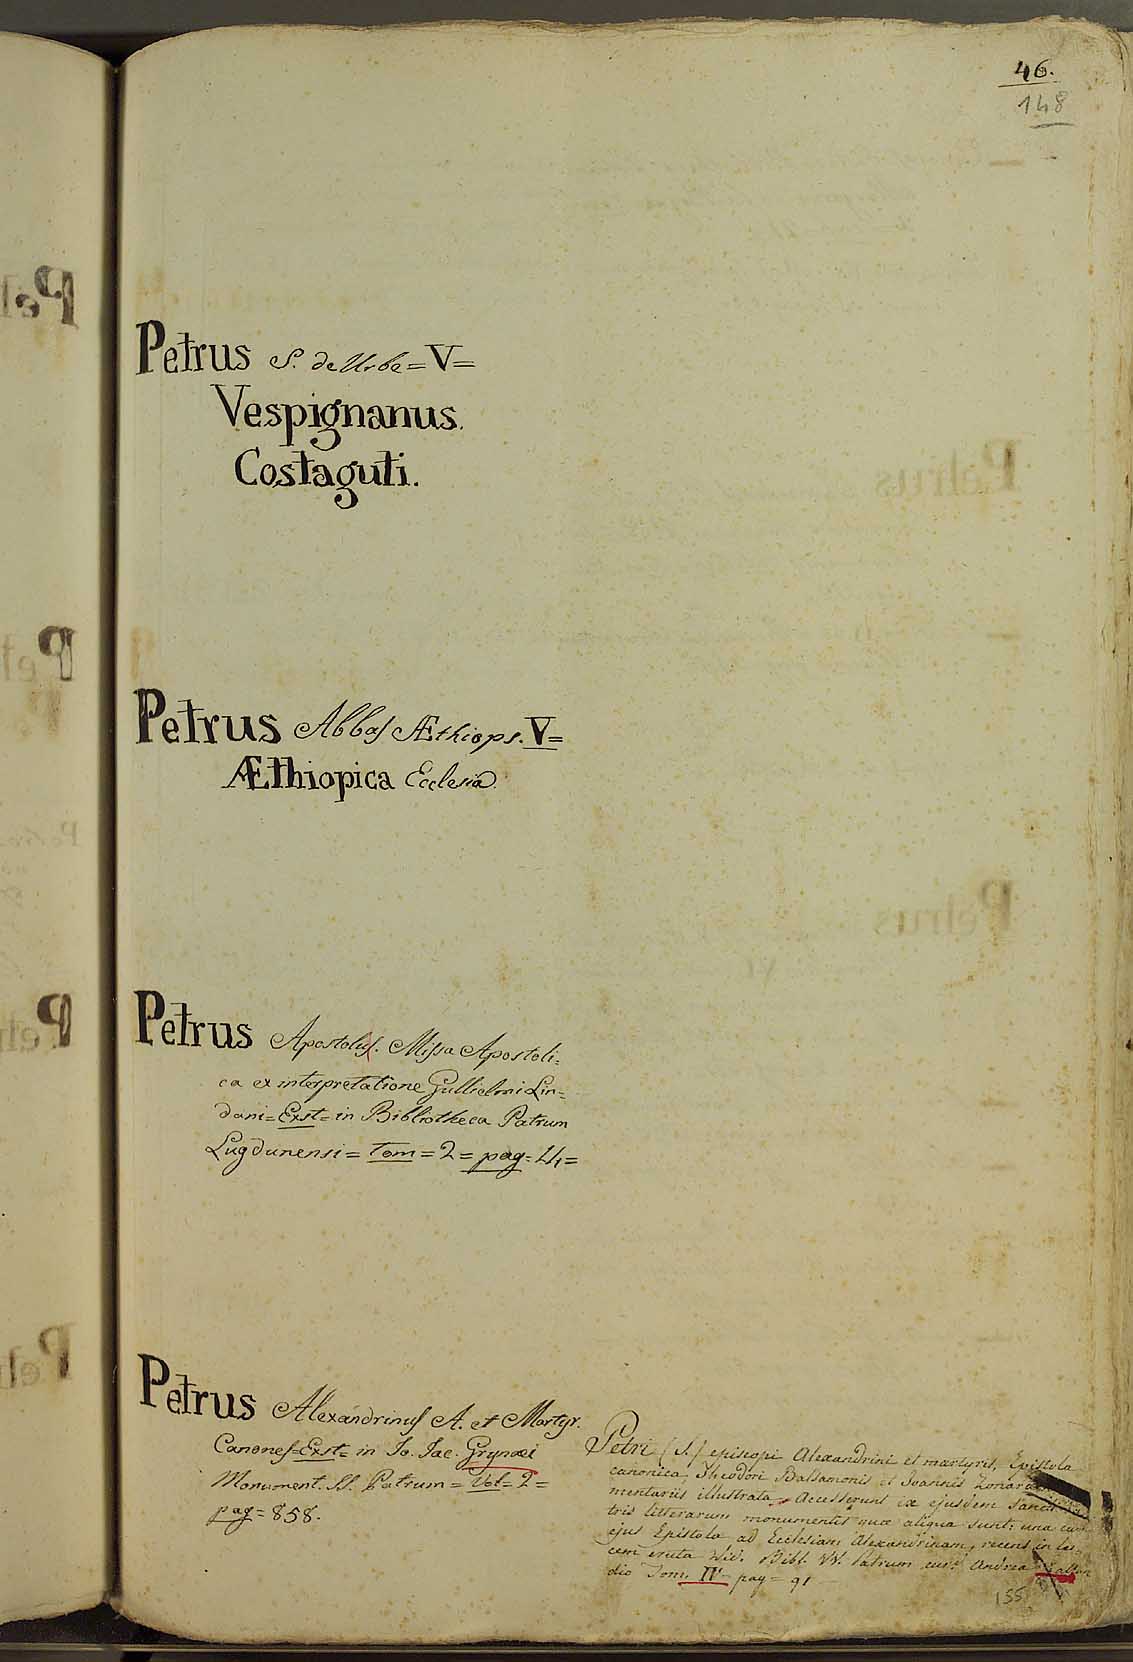 46.
148
Petrus S. de Urbe = V =
Vespignanus.
Costaguti.
Petrus Abbas Æthiops. V =
Æthiopica Ecclesia.
Petrus Apostolus. Missa Apostoli=
ca ex interpretatione Gullielmi Lin=
dani = Exst = in Bibliotheca Patrum
Lugdunensi = tom = 2 = pag =
Petrus Alexandrinus A. et Martyr.
Canones = Exst = in Jo. Jac. Grynæi
Monument. SS. Patrum = Vol = 2 =
pag = 858.
Petri (S.) episcopi Alexandrini et martyris, Epistola
canonica, Theodori Balsamonis et Joannis Zonaræ
mentariis illustrata. Accesserunt ex ejusdem sancti
tris litterarum monumentis quæ aliqua sunt: una cum
ejus Epistola ad Ecclesiam Alexandrinam, recens in lu=
cem eruta Vid. Bibl. VV. Patrum cur. Andrea Gallan
dio Tom. IV - pag = 91 -
155